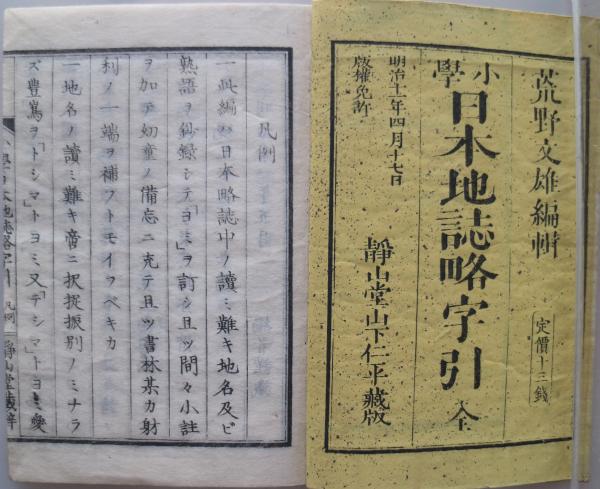 荒野文雄編輯
定價十三錢
小學
日本地誌略字引 全
明治十一年四月十七日
版權免許
靜山堂山下仁平藏版
凡例
一此編ハ日本略誌中ノ讀ミ難キ地名及ビ
熟語ヲ鈔録シテ「ヨミ」ヲ訂シ且ツ間々小註
ヲ加テ幼童ノ備忘ニ充テ且ツ書林某カ射
利ノ一端ヲ補フトモイフベキカ
一地名ノ讀ミ難キ啻ニ択捉振別ノミナラ
ズ豊嶌ヲ「トシマ」トヨミ又「テシマ」トヨミ
小學日本地誌略字引 凡例 一 靜山堂藏梓